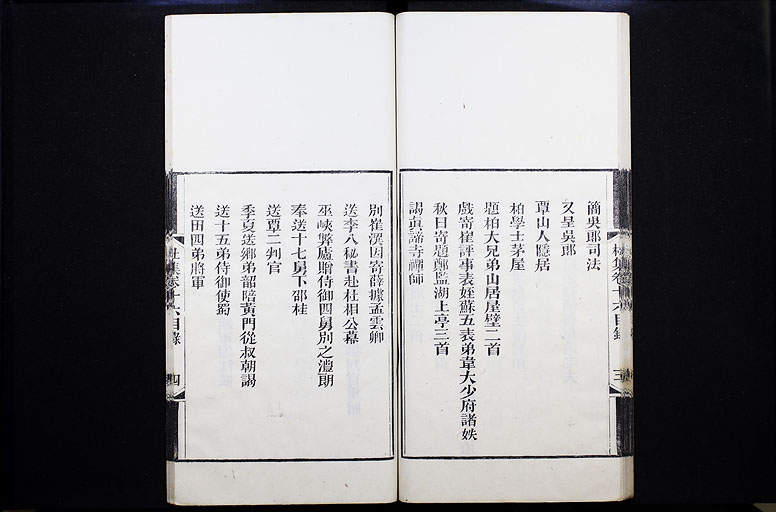 簡吳郎司法
又呈吳郎
覃山人隱居
柏學士茅屋
題柏大兄弟山居屋壁二首
戲寄崔評事表姪蘇五表弟韋大少府諸姪
秋日寄題鄭監湖上亭三首
謁真諦寺禪師
杜集卷十六目錄
三
別崔潩因寄薛據孟雲卿
送李八秘書赴杜相公幕
巫峽弊廬贈侍御四舅別之澧朗
奉送十七舅下邵桂
送覃二判官
季夏送鄉弟韶陪黃門從叔朝謁
送十五弟侍御使蜀
送田四弟將軍
杜集卷十六目錄
四